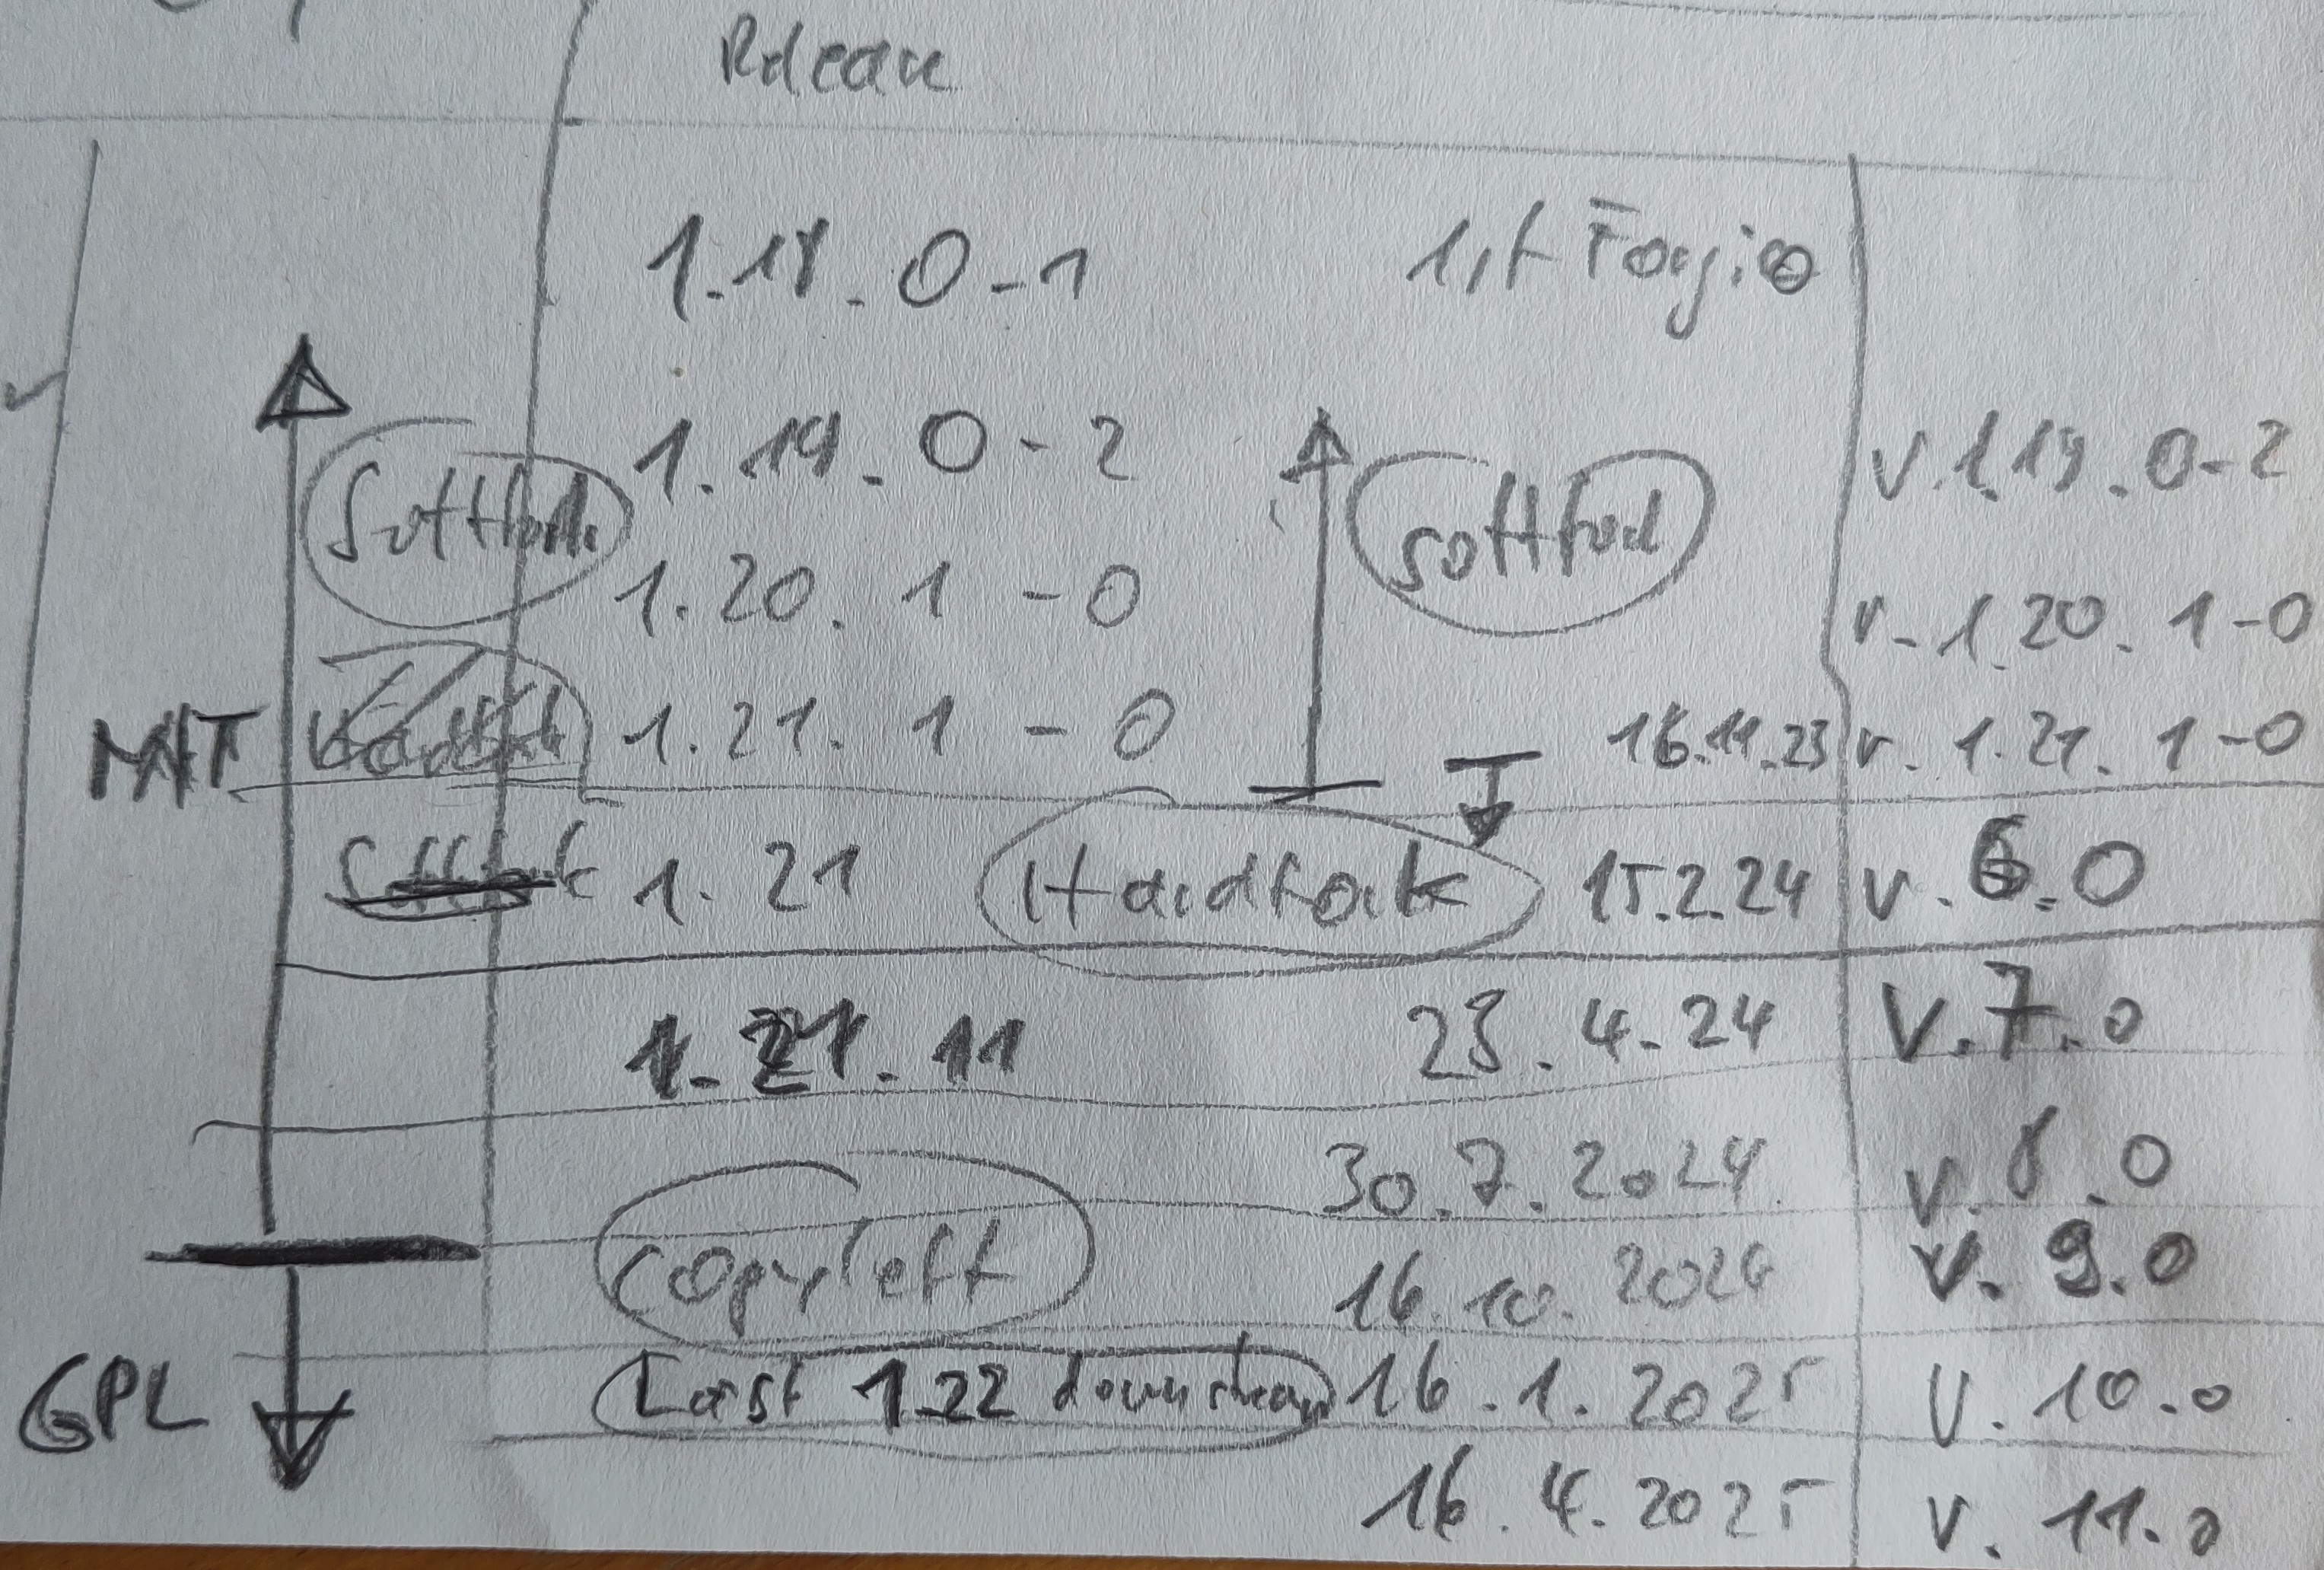 Release
1.18.0-1 1st Forgjeo
Softfork 1.19.0-2 softfork v.1.19.0-2
1.20.1-0 v.1.20.1-0
MIT 1.21.1-0 16.11.23 v.1.21.1-0
Softfork 1.21 Hardfork 15.2.24 v.6.0
1.21.11 23.4.24 V.7.0
30.7.2024 v.8.0
copyleft 16.10.2024 v.9.0
GPL Last 1.22 downstream 16.1.2025 V.10.0
16.4.2025 v.11.0